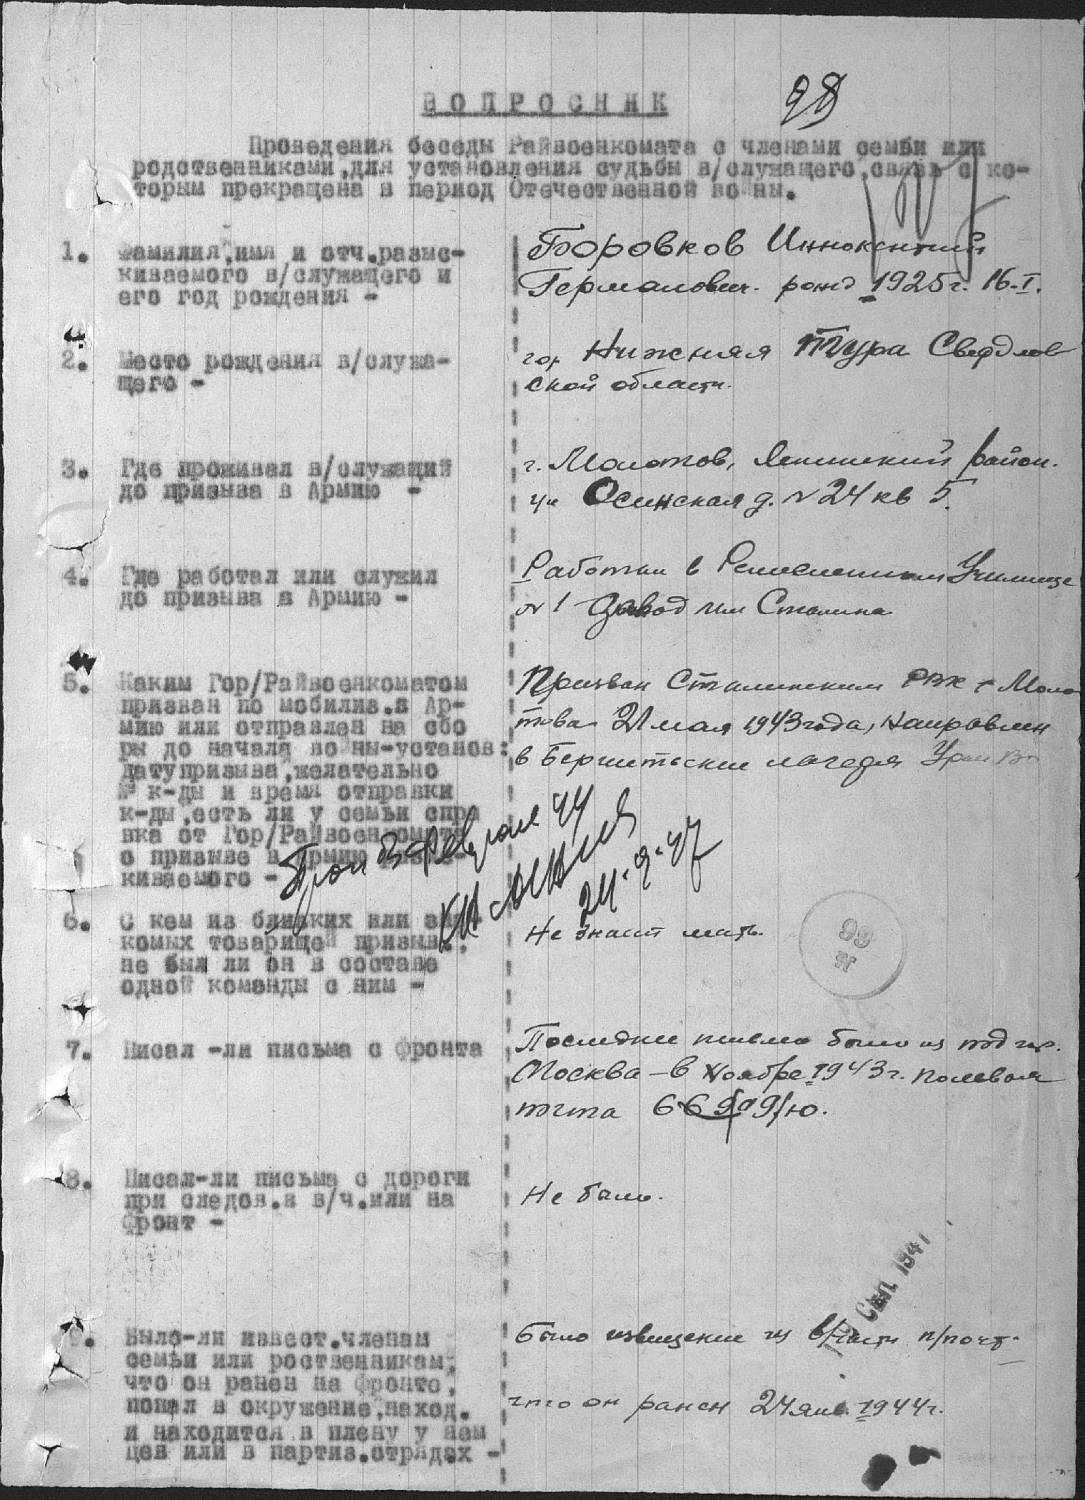 98
ВОПРОСНИК
Проведения беседы Райвоенкомата с членами семьи или
родственниками,для установления судьбы в/служащего,связь с ко-
торым прекращена в период Отечественной войны.
1. Фамилия,имя и отч.разыс-
киваемого в/служащего и
его год рождения -
Боровков Иннокентий
Германович. рожд 1925г. 16-I.
2. Место рождения в/служа-
щего -
гор Нижняя Тура Свердлов
ской области.
3. Где проживал в/служащий
до призыва в Армию -
г. Молотов, Ленинский район.
ул Осинская д. № 24 кв 5.
4. Где работал или служил
до призыва в Армию -
Работал в Ремесленном Училище
№ 1 завод им Сталина
5. Каким Гор/Райвоенкоматом
призван по мобилиз.в Ар-
мию или отправлен на сбо
ры до начала войны-установ:
дату призыва,желательно
№ к-ды и время отправки
к-ды,есть ли у семьи спра
вка от Гор/Райвоенкомата
о призыве в Армию разыс-
киваемого -
Призван Сталинским РВК г Моло
това 21 мая 1943 года, направлен
в Бершетские лагеря Урал В
феврале 44
24-9-47
6. С кем из близких или зна-
комых товарищей призыв.,
не был ли он в составе
одной команды с ним -
Не знает мать.
99
Н
7. Писал -ли письма с фронта
Последнее письмо было из под гор.
Москва - в Ноябре 1943 г. полевая
почта
8. Писал-ли письма с дороги
при следов.в в/ч.или на
фронт -
Не было.
Сен. 1947
9. Было-ли извест.членам
семьи или роственникам,
что он ранен на фронте,
попал в окружение,наход.
и находится в плену у нем
цев или в партиз.отрядах -
было извещение из в/части п/почт-
что он ранен 24 янв. 1944г.